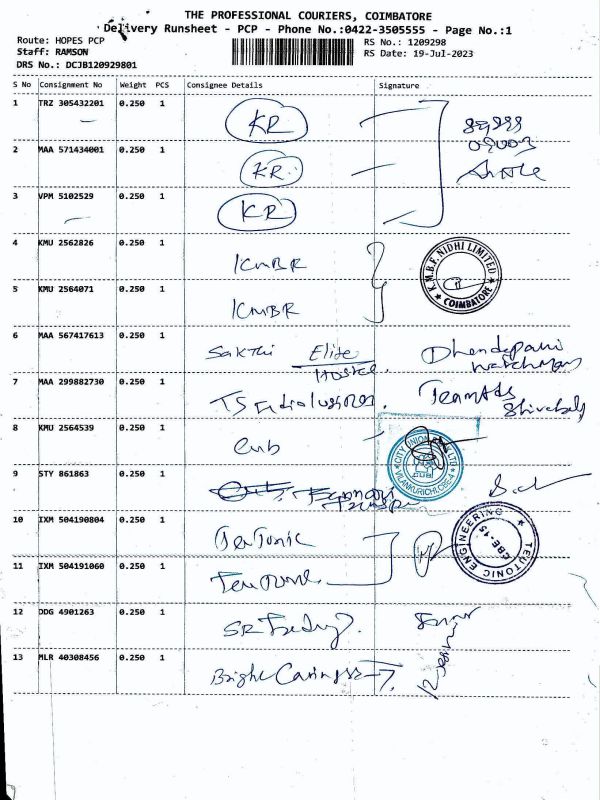 THE PROFESSIONAL COURIERS, COIMBATORE
Delivery Runsheet - PCP - Phone No.:0422-3505555 - Page No.:1
Route: HOPES PCP
RS No.: 1209298
Staff: RAMSON
RS Date: 19-Jul-2023
DRS No.: DCJB120929801
S No Consignment No Weight PCS Consignee Details Signature
1 TRZ 305432201 0.250 1 KR
2 MAA 571434001 0.250 1 KR
3 VPM 5102529 0.250 1 KR
4 KMU 2562826 0.250 1 KMBR
K.M.B.F. NIDHI LIMITED
COIMBATORE
5 KMU 2564071 0.250 1 KMBR
6 MAA 567417613 0.250 1 Sakthi Elite Hostel. Dhendapani
watchman
7 MAA 299882730 0.250 1 TS
8 KMU 2564539 0.250 1 cub
CITY UNION BANK LTD
9 STY 861863 0.250 1
10 IXM 504190804 0.250 1 TeuTonic
TEUTONIC ENGINEERING
CBE-15
11 IXM 504191060 0.250 1
12 DDG 4901263 0.250 1 SR
13 MLR 40308456 0.250 1 Bright